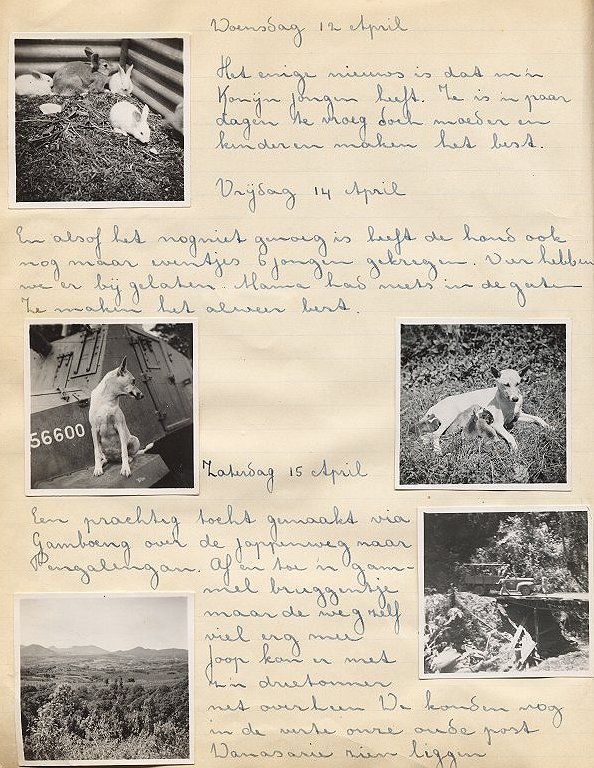 Woensdag 12 April
Het enige nieuws is dat m'n
Konijn jongen heeft. Ze is 'n paar
dagen te vroeg doch moeder en
kinderen maken het best.
Vrijdag 14 April
En alsof het nog niet genoeg is heeft de hond ook
nog maar eventjes 6 jongen gekregen. Vier hebben
we er bij gelaten. Mama had niets in de gaten
Ze maken het alweer best.
56600
Zaterdag 15 April
Een prachtig tocht gemaakt via
Gamboeng over de jappenweg naar
Pengalengan. Af en toe 'n gam-
mel bruggentje
maar de weg zelf
viel erg mee
Joop kon er met
z'n drietonner
net overheen We konden nog
in de verte onze oude post
Wanasarie zien liggen